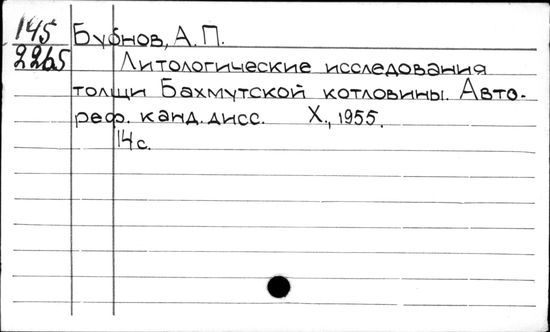 145 Бубнов, А.П.
2265 Литологические исследования
толщи Бахмутской котловины. Авто-
реф. канд. дисс. Х., 1955.
14 с.